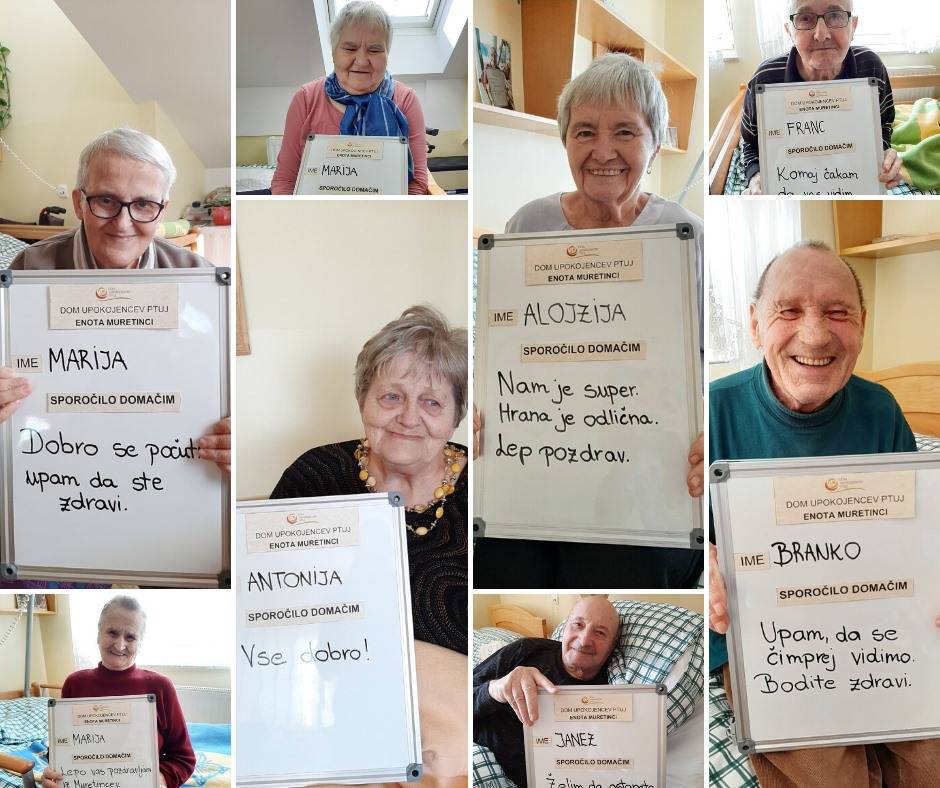 DOM UPOKOJENCEV PTUJ
ENOTA MURETINCI
IME MARIJA
SPOROČILO DOMAČIM
Dobro se počuti
upam da ste
zdravi.
DOM UPOKOJENCEV PTUJ
ENOTA MURETINCI
IME MARIJA
SPOROČILO DOMAČIM
Lepo vas pozdravljam
iz Muretincev.
DOM UPOKOJENCEV PTUJ
ENOTA MURETINCI
IME MARIJA
SPOROČILO DOMAČIM
DOM UPOKOJENCEV PTUJ
ENOTA MURETINCI
ANTONIJA
SPOROČILO DOMAČIM
Vse dobro!
DOM UPOKOJENCEV PTUJ
ENOTA MURETINCI
IME ALOJZIJA
SPOROČILO DOMAČIM
Nam je super.
Hrana je odlična.
Lep pozdrav.
DOM UPOKOJENCEV PTUJ
ENOTA MURETINCI
IME JANEZ
SPOROČILO DOMAČIM
Želim da ostanete
DOM UPOKOJENCEV PTUJ
ENOTA MURETINCI
IME FRANC
SPOROČILO DOMAČIM
Komaj čakam
da vas vidim
DOM UPOKOJENCEV PTUJ
ENOTA MURETINCI
IME BRANKO
SPOROČILO DOMAČIM
Upam, da se
čimprej vidimo.
Bodite zdravi.